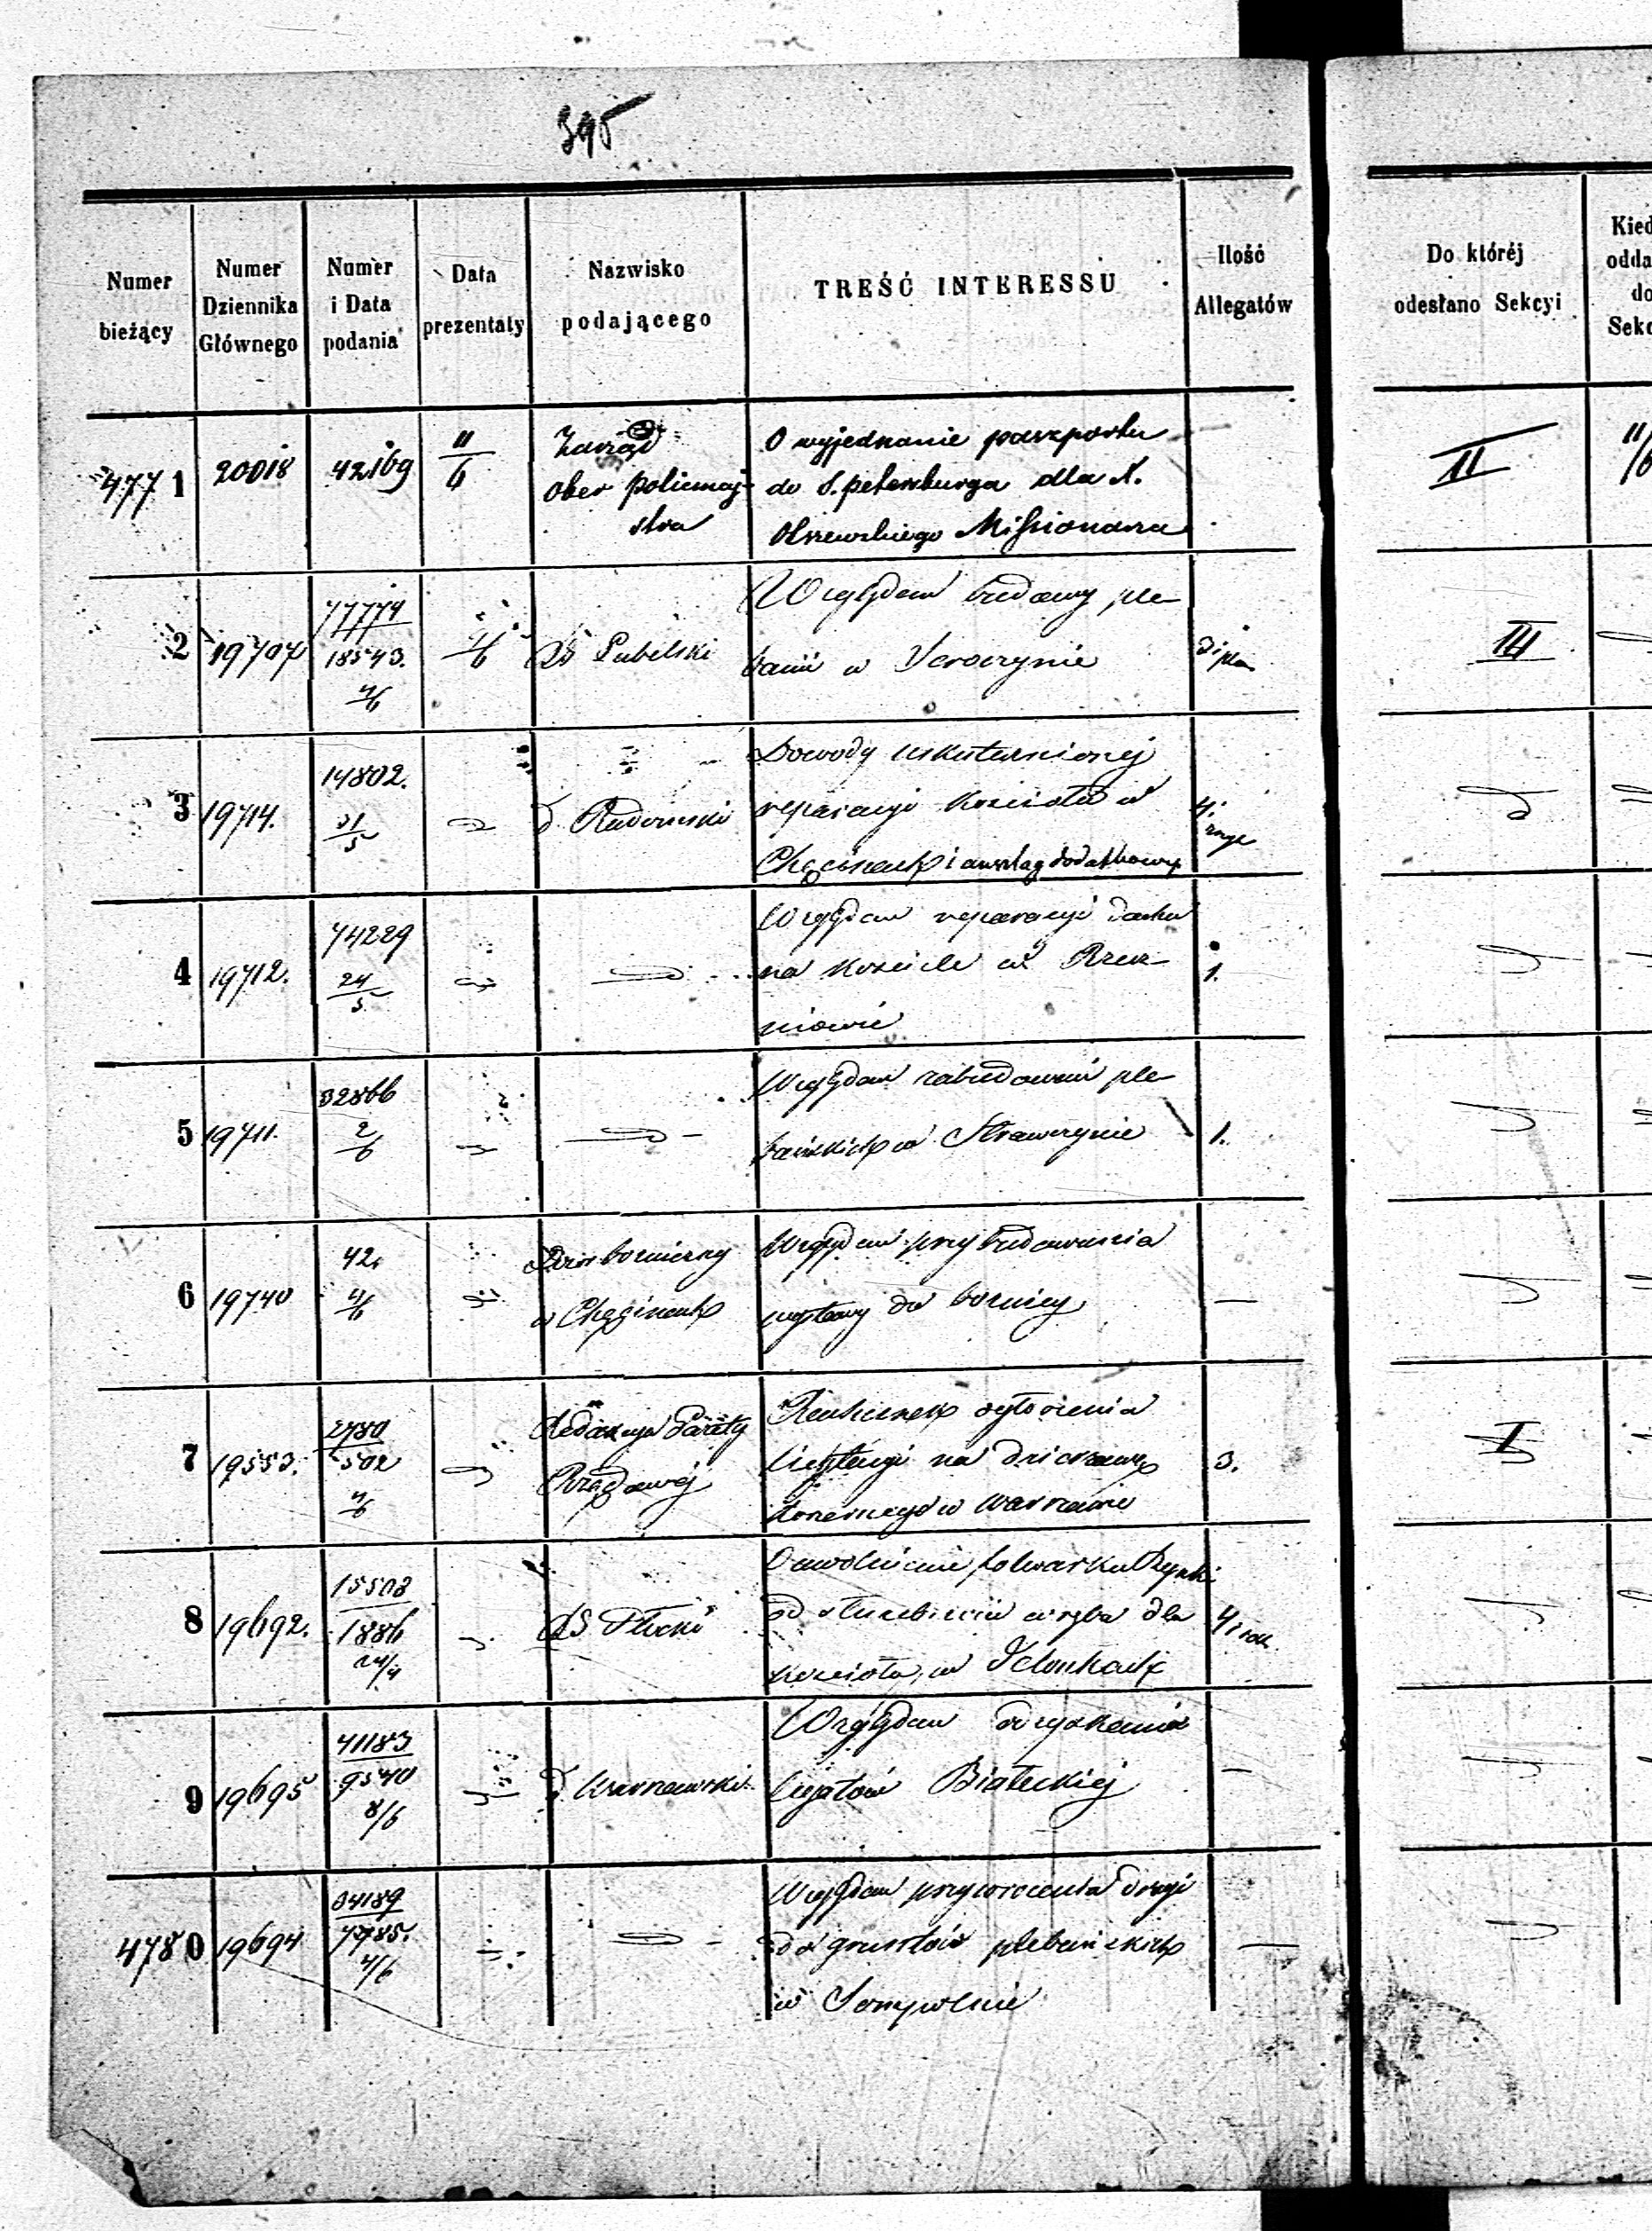 395
Numer bieżący
Numer Dziennika Głównego
Numer i Data podania
Data prezentaty
Nazwisko podającego
TREŚĆ INTERESSU
Ilość Allegatów
Do któréj odesłano Sekcyi
4771 20018 42169 11/6
Zarząd
Ober policmaj-
stra
O wyjednanie paszportu
do S. petersburga dla X.
Olszewskiego Missionarza
II
11/6
2 19707 18543. 4/6
Lubelski
Względem budowy ple-
banii w
III
3 19714. 14802. 31/5
Radomski
Dowody uskutecznionej
reparacyi Kościoła w
Chęcinach i anszlag dodatkowy
4 19712. 74229 24/5
Względem reparacyi dachu
na Kościele w
niowie
1.
5 19711. 32866 2/6
Względem zabudowań ple-
bańskich w Strawczynie
1.
6 19740 42. 4/6
Dozór bożniczny
w Chęcinach
Względem przybudowania
do bożnicy
—
7 19553. 2780 502 4/6
Redakcya Gazety
Rządowéj
Rachunek ogłoszenia
licytacyi na dzierżawę
w Warszawie
3.
I
8 19692. 15508 1886 24/4
Płocki
O uwolnienie folwarku
od dla
kościoła w
4
9 19695 41183 9540 8/6
Warszawski
Względem odzyskania
legatów Białeckiej
—
4780 19694 34189 7785. 4/6
Względem przywrócenia drogi
do gruntów plebańskich
w Sompolnie
—